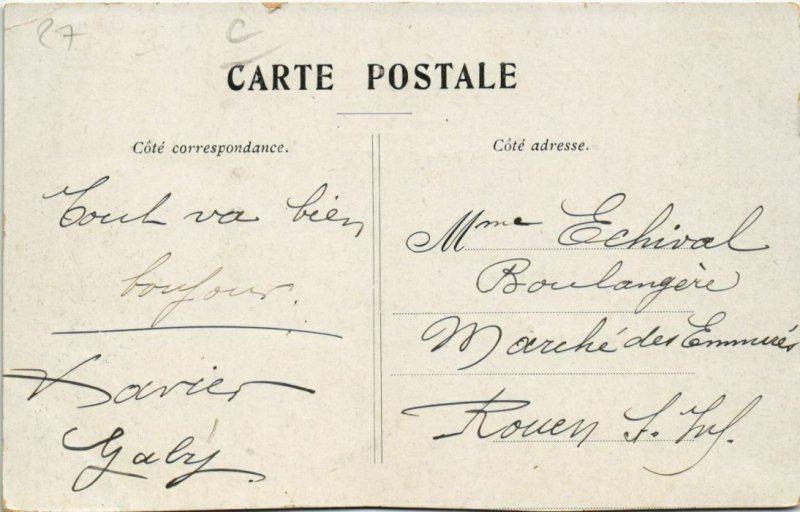 27
C
CARTE POSTALE
Côté correspondance.
Côté adresse.
Tout va bien
bonjour.
Xavier
Gaby
Mme Echival
Boulangère
Marché des Emmurés
Rouen S. Inf.